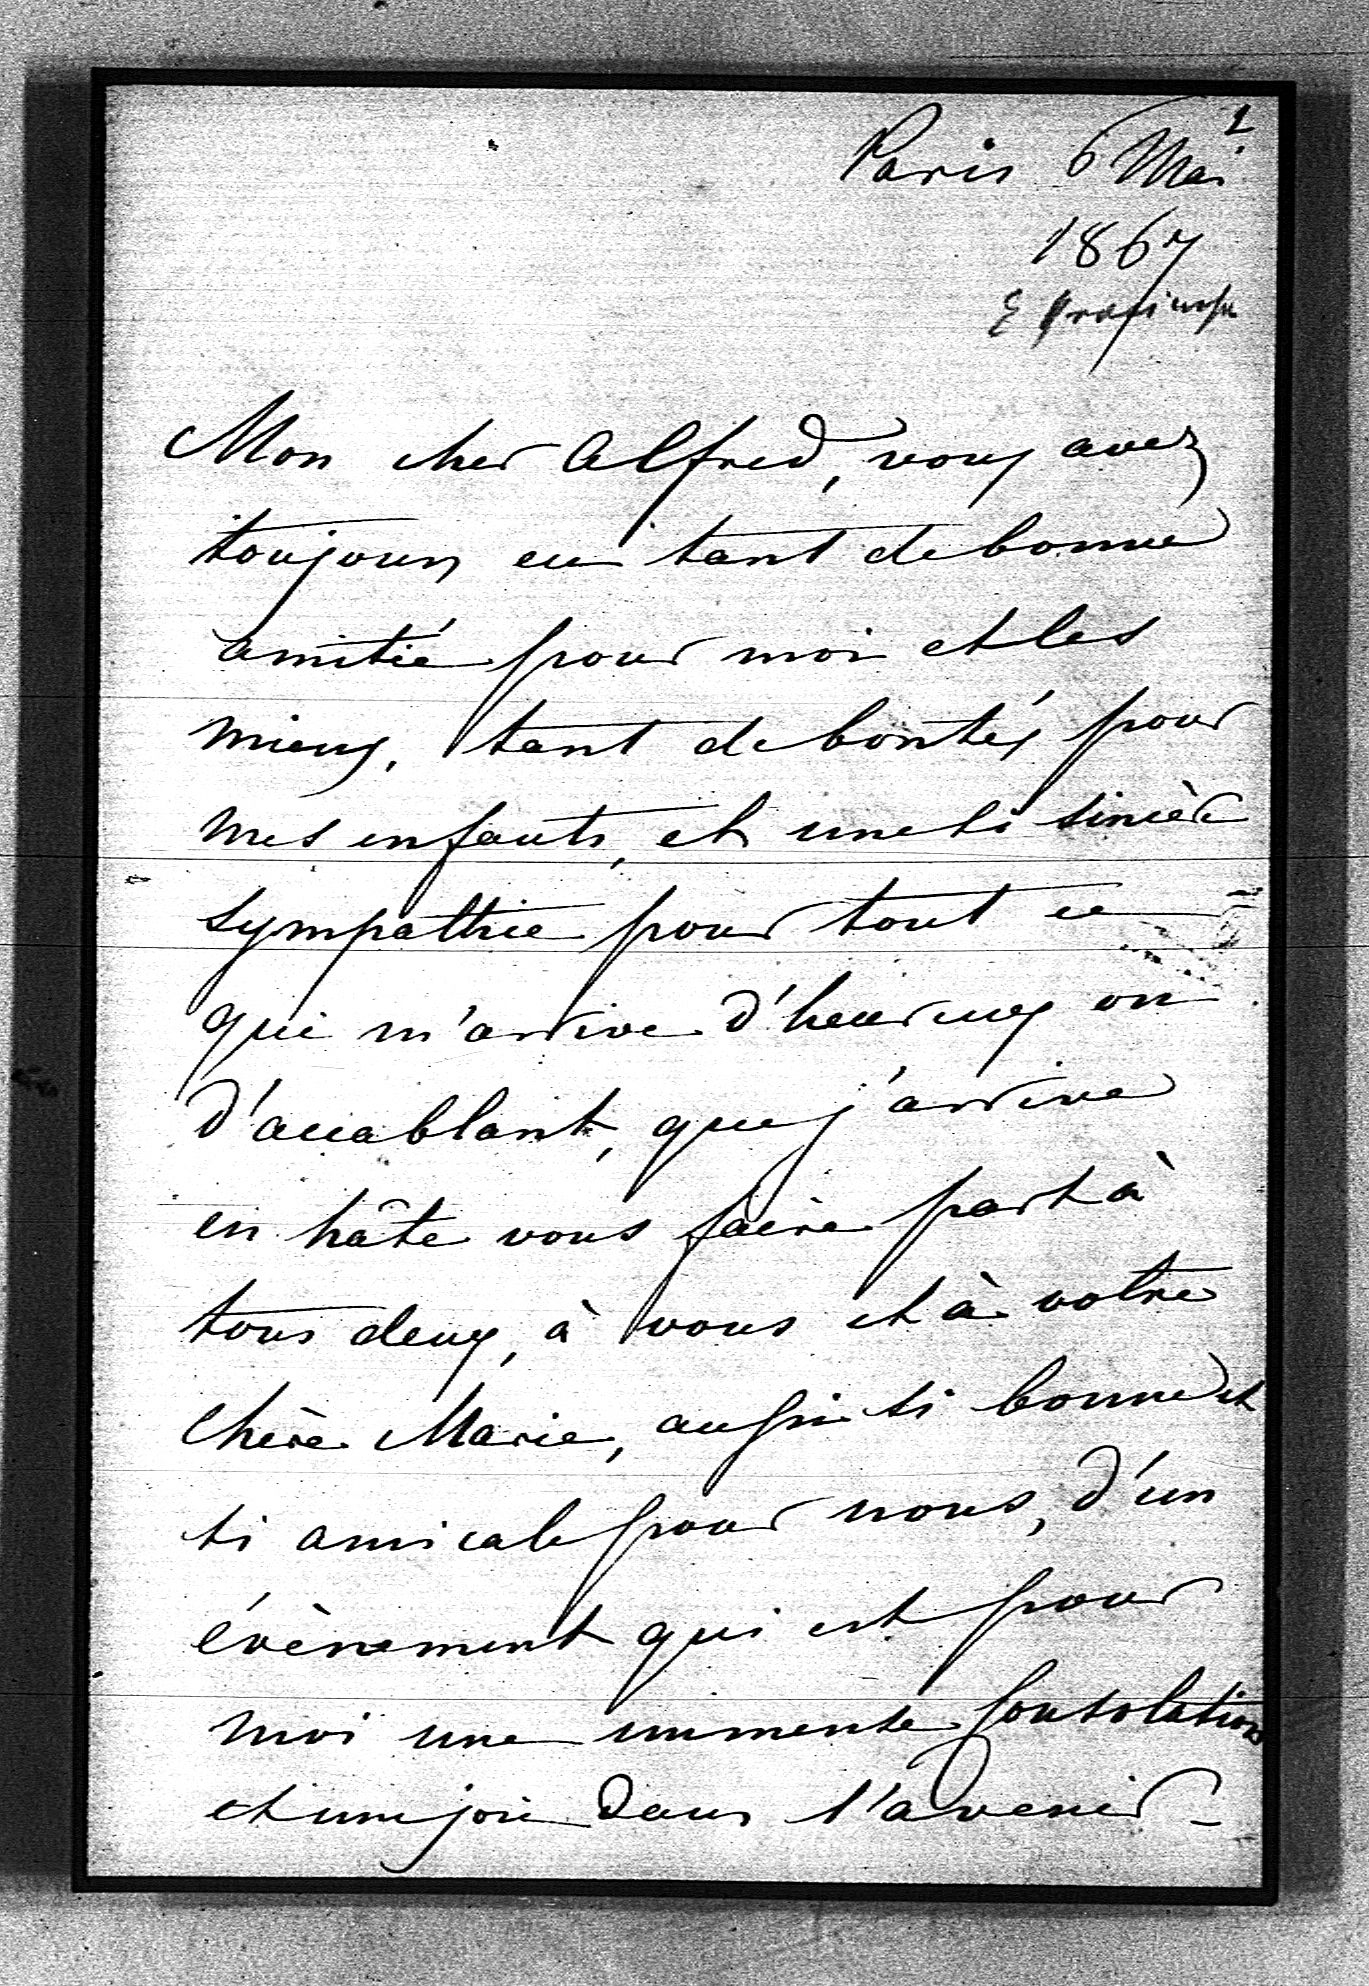 1
Paris 6 Mai
1867
Mon cher Alfred, vous avez
toujours eu tant de bonne
amitié pour moi et les
miens, tant de bontés pour
mes enfants, et une si sincère
sympathie pour tout ce
qui m'arrive d'heureux ou
d'accablant, que j'arrive
en hâte vous faire part à
tous deux, à vous et à votre
chère Marie, aussi si bonne et
si amicale pour nous, d'un
évènement qui est pour
moi une immense consolation
et une joie dans l'avenir_